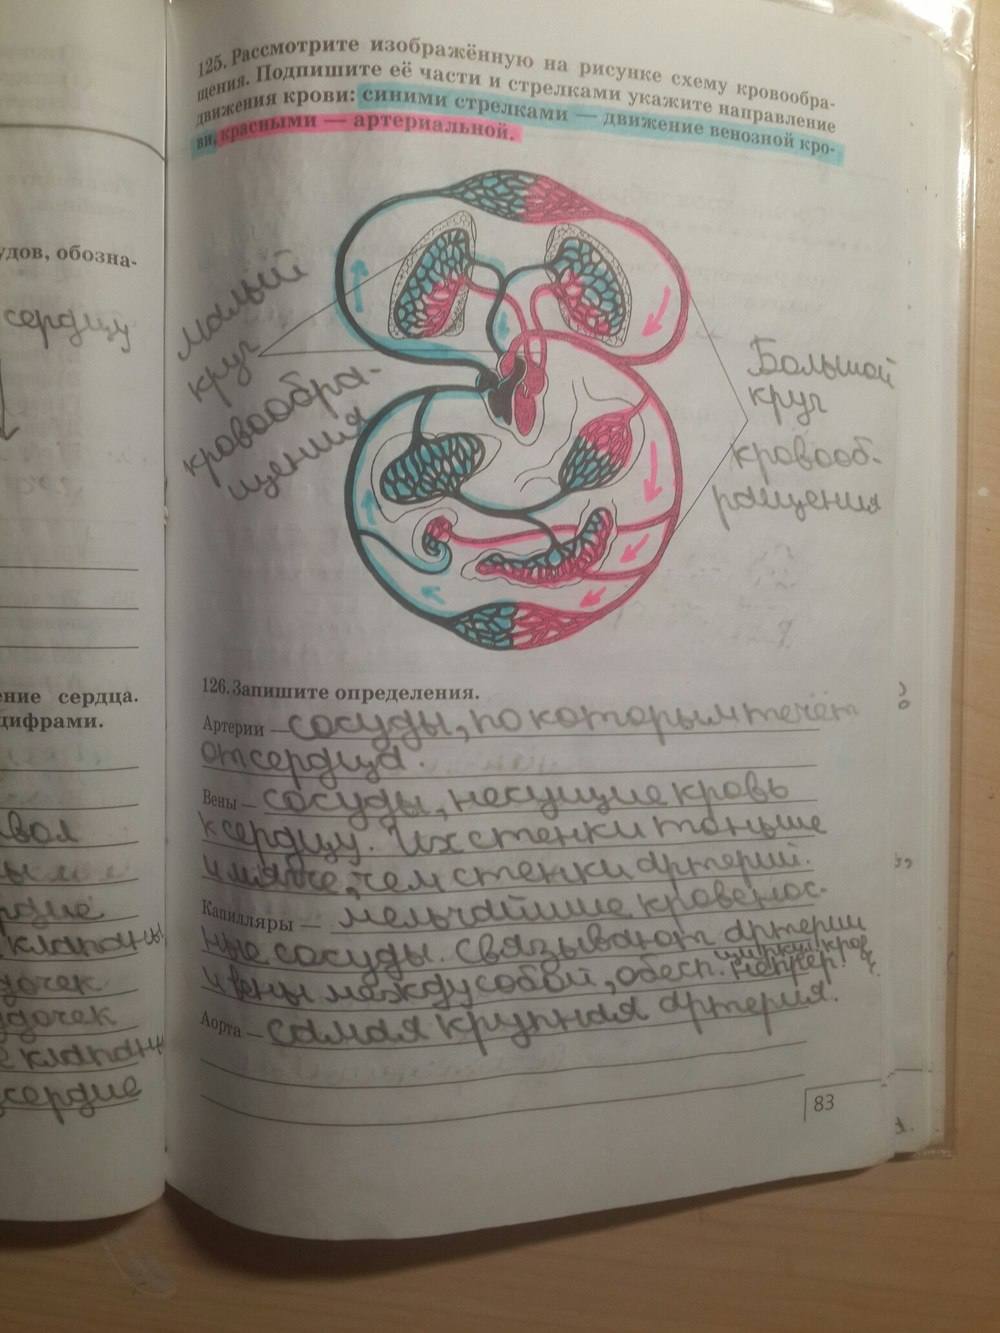 125. Рассмотрите изображённую на рисунке схему кровообра-
щения. Подпишите её части и стрелками укажите направление
движения крови: синими стрелками — движение венозной кро-
ви, красными — артериальной.
удов, обозна-
сердцу
малый
круг
кровообра-
щения
Большой
круг
кровооб-
ращения
ение сердца.
цифрами.
126. Запишите определения.
Артерии — сосуды, по которым течёт
от сердца.
Вены — сосуды, несущие кровь
к сердцу. Их стенки тоньше
и мягче, чем стенки артерий.
Капилляры — мельчайшие кровенос-
ные сосуды. Связывают артерии
и вены между собой, обесп.
Аорта — самая крупная артерия.
вол
рдие
клапаны
дочек
дочек
е клапаны
сердие
83